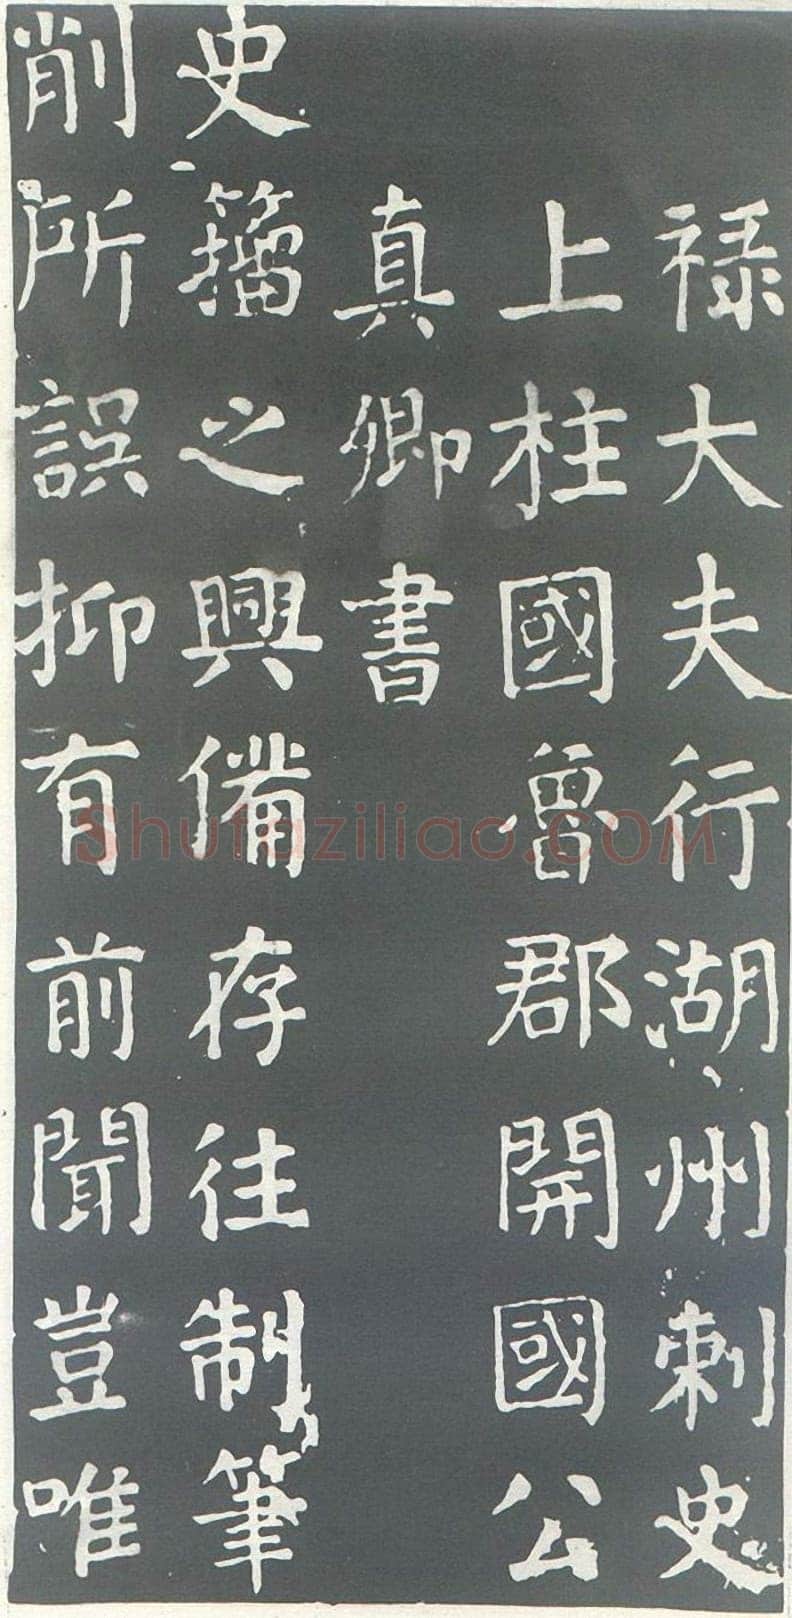 禄大夫行湖州刺史
上柱國魯郡開國公
真卿書
史籀之興備存往制筆
削所誤抑有前聞豈唯
Shufaziliao.COM